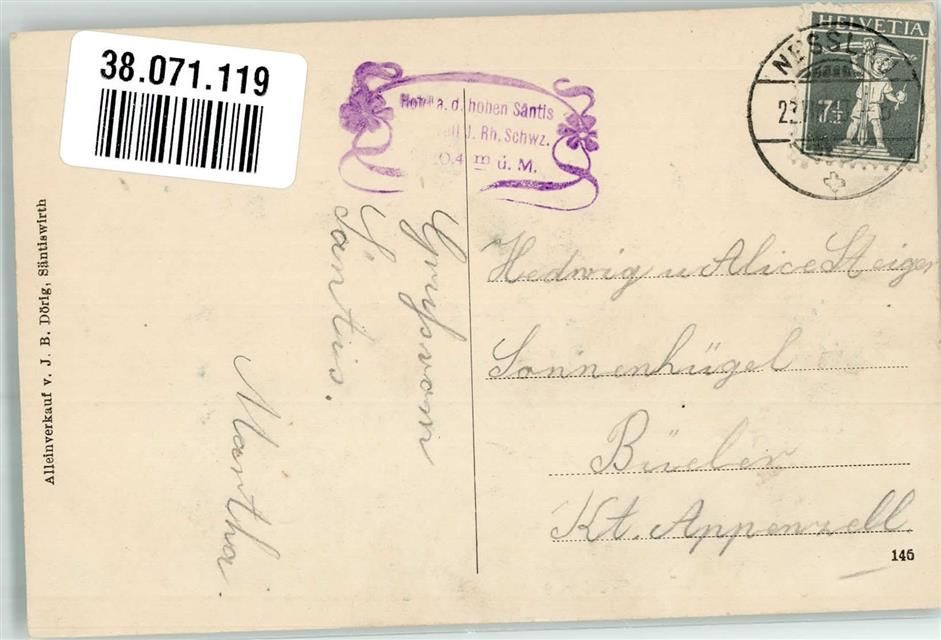 38.071.119
a. d. hohen Säntis
Rh. Schwz.
m ü. M.
HELVETIA
NESSL
Alleinverkauf v. J. B. Dörig, Säntiswirth
Gruss vom
Säntis.
Martha
Hedwig u Alice Steiger
Sonnenhügel
Büeler
Kt. Appenzell.
146